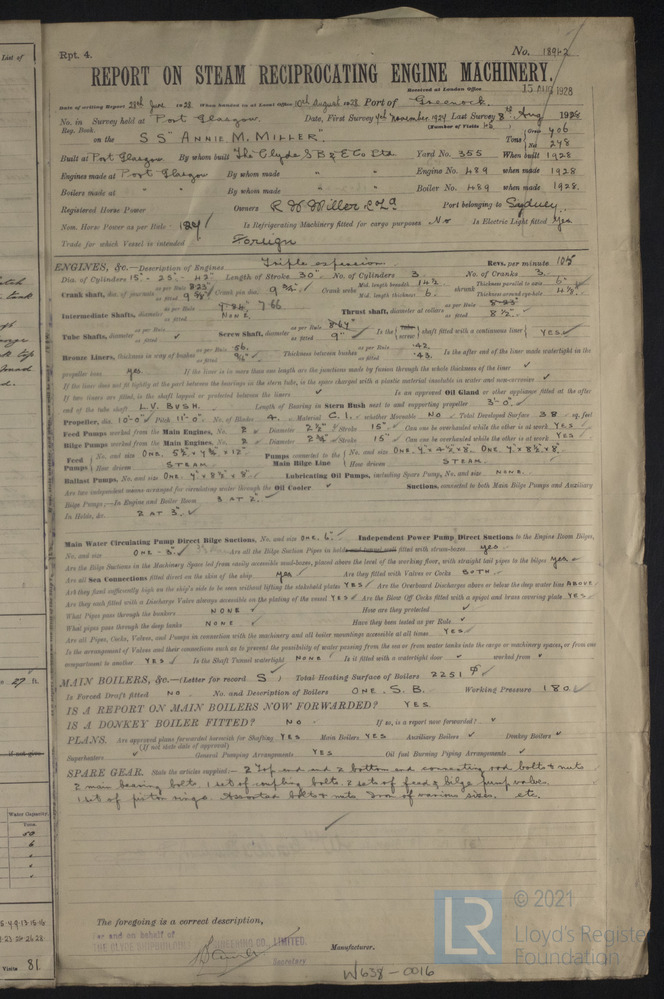 List of
Rpt. 4.
No. 18942
REPORT ON STEAM RECIPROCATING ENGINE MACHINERY.
Received at London Office 15 AUG 1928
Date of writing Report 28th June 1928 When handed in at Local Office 10th August 1928 Port of Greenock.
No. in Survey held at Port Glasgow. Date, First Survey 7th November, 1927 Last Survey 8th Aug 1928
Reg. Book. (Number of Visits
on the SS "ANNIE M. MILLER." Tons Gross 706 Net 248
Built at Port Glasgow By whom built The Clyde S B & E Co Ltd Yard No. 355 When built 1928
Engines made at Port Glasgow By whom made " " Engine No. 489 when made 1928
Boilers made at " " By whom made " " Boiler No. 489 when made 1928.
Registered Horse Power Owners R W Miller & Co Port belonging to Sydney.
Nom. Horse Power as per Rule Is Refrigerating Machinery fitted for cargo purposes No Is Electric Light fitted Yes
Trade for which Vessel is intended Foreign
ENGINES, &c.—Description of Engines Triple expansion. Revs. per minute 105
Dia. of Cylinders 15"- 25"- 42" Length of Stroke 30" No. of Cylinders 3 No. of Cranks 3
Crank shaft, dia. of journals as per Rule as fitted Crank pin dia. Crank webs Mid. length breadth 14½ Mid. length thickness 6. shrunk Thickness parallel to axis 6" Thickness around eye-hole
Intermediate Shafts, diameter as per Rule as fitted NONE Thrust shaft, diameter at collars as per Rule as fitted 8½"
Tube Shafts, diameter as per Rule as fitted Screw Shaft, diameter as per Rule as fitted 9" Is the screw shaft fitted with a continuous liner YES
Bronze Liners, thickness in way of bushes as per Rule .56. as fitted Thickness between bushes as per Rule .42 as fitted .43. Is the after end of the liner made watertight in the
propeller boss yes If the liner is in more than one length are the junctions made by fusion through the whole thickness of the liner ✓
If the liner does not fit tightly at the part between the bearings in the stern tube, is the space charged with a plastic material insoluble in water and non-corrosive ✓
If two liners are fitted, is the shaft lapped or protected between the liners ✓ Is an approved Oil Gland or other appliance fitted at the after
end of the tube shaft L.V. BUSH. Length of Bearing in Stern Bush next to and supporting propeller 3'-0"
Propeller, dia. 10'-0" Pitch 11'-0" No. of Blades 4. Material C.I. whether Moveable NO Total Developed Surface 38 sq. feet
Feed Pumps worked from the Main Engines, No. 2 Diameter 2½" Stroke 15" Can one be overhauled while the other is at work YES
Bilge Pumps worked from the Main Engines, No. 2 Diameter Stroke 15" Can one be overhauled while the other is at work YES
Feed Pumps No. and size ONE. 5½" x 4¾" x 12" How driven STEAM Pumps connected to the Main Bilge Line No. and size ONE. 4" x 4½" x 8" ONE 4" x 8½" x 8" How driven STEAM.
Ballast Pumps, No. and size ONE. 4" x 8½" x 8" Lubricating Oil Pumps, including Spare Pump, No. and size NONE.
Are two independent means arranged for circulating water through the Oil Cooler ✓ Suctions, connected to both Main Bilge Pumps and Auxiliary
Bilge Pumps;—In Engine and Boiler Room 3 AT 2".
In Holds, &c. 2 AT 3".
Main Water Circulating Pump Direct Bilge Suctions, No. and size ONE. 6" Independent Power Pump Direct Suctions to the Engine Room Bilges,
No. and size ONE - 3" Are all the Bilge Suction Pipes in holds and tunnel well fitted with strum-boxes yes
Are the Bilge Suctions in the Machinery Space led from easily accessible mud-boxes, placed above the level of the working floor, with straight tail pipes to the bilges yes
Are all Sea Connections fitted direct on the skin of the ship yes Are they fitted with Valves or Cocks BOTH.
Are they fixed sufficiently high on the ship's side to be seen without lifting the stokehold plates YES Are the Overboard Discharges above or below the deep water line ABOVE
Are they each fitted with a Discharge Valve always accessible on the plating of the vessel YES Are the Blow Off Cocks fitted with a spigot and brass covering plate YES
What Pipes pass through the bunkers NONE How are they protected ✓
What pipes pass through the deep tanks NONE Have they been tested as per Rule ✓
Are all Pipes, Cocks, Valves, and Pumps in connection with the machinery and all boiler mountings accessible at all times YES
Is the arrangement of Valves and their connections such as to prevent the possibility of water passing from the sea or from water tanks into the cargo or machinery spaces, or from one
compartment to another YES Is the Shaft Tunnel watertight NONE Is it fitted with a watertight door ✓ worked from ✓
MAIN BOILERS, &c.—(Letter for record S.) Total Heating Surface of Boilers 2251
Is Forced Draft fitted NO No. and Description of Boilers ONE. S. B. Working Pressure 180
IS A REPORT ON MAIN BOILERS NOW FORWARDED? YES
IS A DONKEY BOILER FITTED? NO. If so, is a report now forwarded? ✓
PLANS. Are approved plans forwarded herewith for Shafting YES Main Boilers YES Auxiliary Boilers ✓ Donkey Boilers ✓
(If not state date of approval)
Superheaters ✓ General Pumping Arrangements YES Oil fuel Burning Piping Arrangements ✓
SPARE GEAR. State the articles supplied:— 2 top end and 2 bottom end connecting rod bolts & nuts
2 main bearing bolts. 1 set of coupling bolts. 2 sets of feed & bilge pump valves.
1 set of piston rings. Assorted bolts & nuts. Iron of various sizes. etc.
The foregoing is a correct description,
For and on behalf of
THE CLYDE SHIPBUILDING & ENGINEERING CO., LIMITED
Secretary Manufacturer.
W638-0016
27 ft.
if not give
Water Capacity.
Tons.
50
6
Visits 81.
LR
© 2021
Lloyd's Registe
Foundation